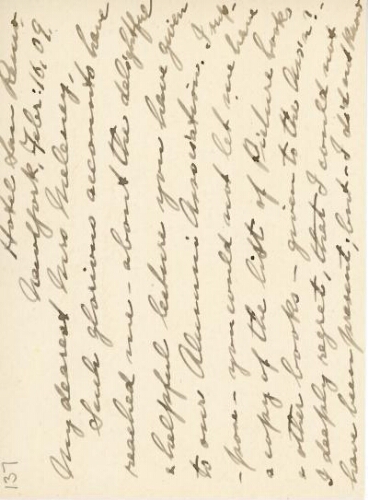 137
Hotel San Remo
New York, Febr: 16, 09.
My dearest Mrs Meleney,
Such glorious accounts have
reached me - about the delightful
& helpful lecture you have given
to our Alumni Association. I sup-
-pose - you would not let me have
a copy of the list of Picture books
& other books - given to the Ass'n? -
I deeply regret, that I could not
have been present, but - I did not know